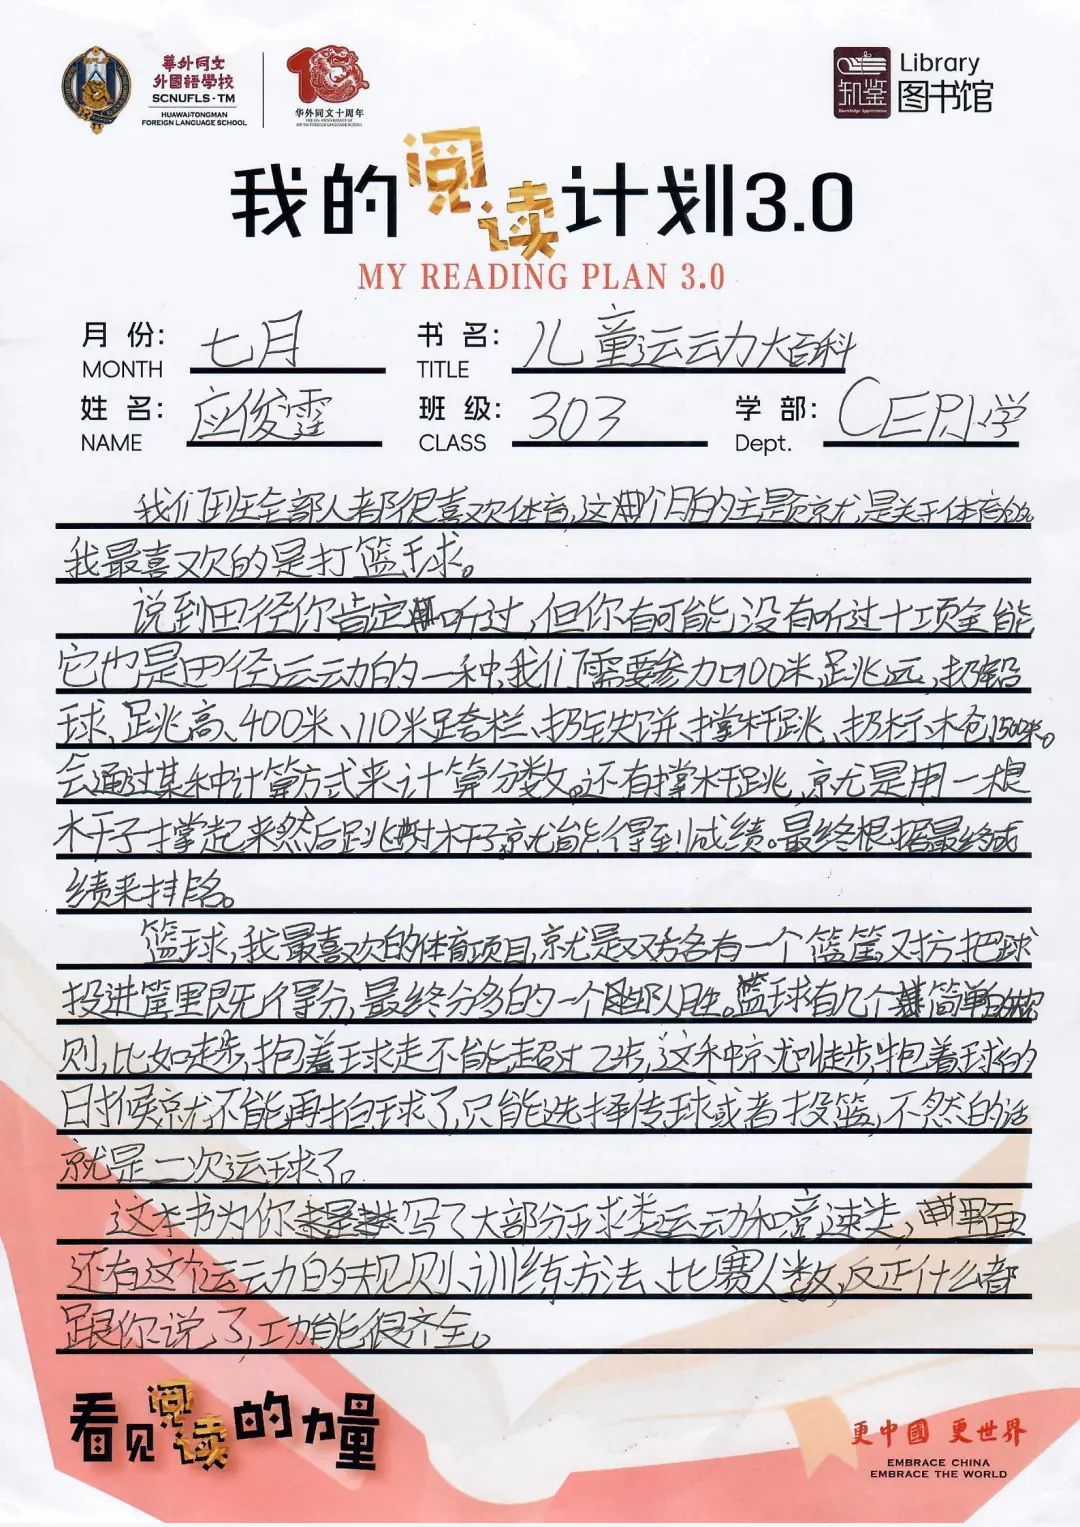 華外同文
外國語學校
SCNUFLS·TM
HUAWAI·TONGMAN
FOREIGN LANGUAGE SCHOOL
华外同文十周年
知鉴
Library
图书馆
我的阅读计划3.0
MY READING PLAN 3.0
月份: 七月 书名: 儿童运动大百科
MONTH TITLE
姓名: 应俊霆 班级: 303 学部: CEP小学
NAME CLASS Dept.
我们班全部人都很喜欢体育,这个月的主题就是关于体育的,
我最喜欢的是打篮球。
说到田径你肯定听过,但你有可能没有听过十项全能
它也是田径运动的一种,我们需要参加100米、跳远、扔铅
球、跳高、400米、110米跨栏、扔铁饼、撑杆跳、扔标枪、1500米。
会通过某种计算方式来计算分数。还有撑杆跳,就是用一根
杆子撑起来然后跳过杆子就能得到成绩。最终根据最终成
绩来排名。
篮球,我最喜欢的体育项目,就是双方各有一个篮筐,对方把球
投进筐里既可得分,最终分多的一个队胜。篮球有几个简单的规
则,比如走步,抱着球走不能超过2步,这种就叫走步,抱着球的
时候就不能再拍球了,只能选择传球或者投篮,不然的话
就是二次运球了。
这本书为你写了大部分球类运动和竞速类,里面
还有这个运动的规则、训练方法、比赛人数,反正什么都
跟你说了,功能很齐全。
看见阅读的力量
更中國 更世界
EMBRACE CHINA
EMBRACE THE WORLD